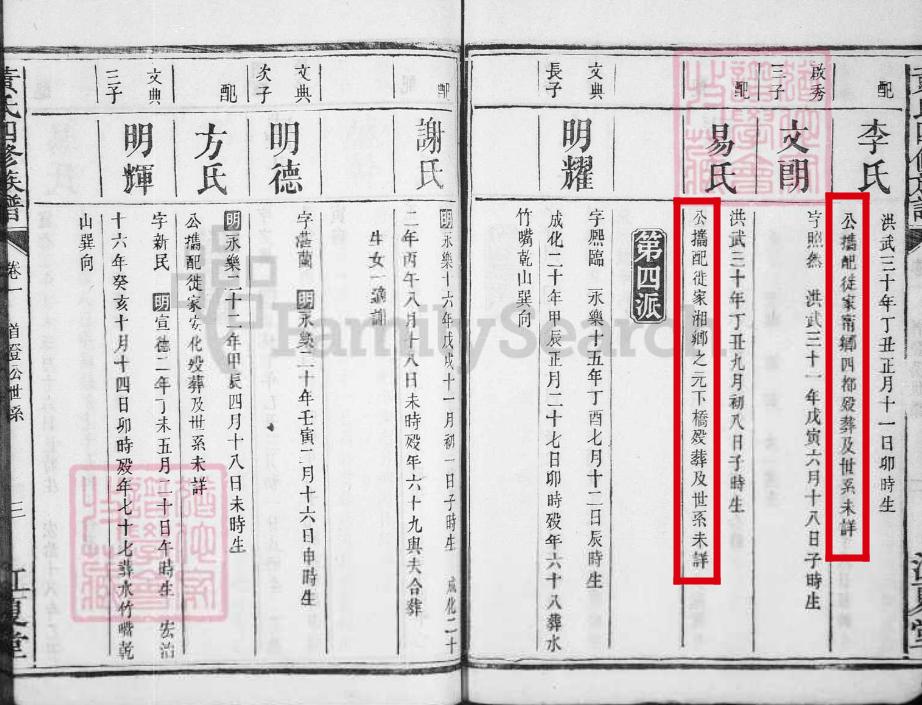 配
李氏
洪武三十年丁丑正月十一日卯時生
公攜配徙家甯鄉四都歿葬及世系未詳
啟秀
三子
文朗
字照然 洪武三十一年戊寅六月十八日子時生
配
易氏
洪武三十年丁丑九月初八日子時生
公攜配徙家湘鄉之元下橋歿葬及世系未詳
第四派
文典
長子
明耀
字熙臨 永樂十五年丁酉七月十二日辰時生
成化二十年甲辰正月二十七日卯時歿年六十八葬水
竹嘴乾山巽向
配
謝氏
明永樂十六年戊戌十一月初一日子時生 成化二十
二年丙午八月十八日未時歿年六十九與夫合葬
生女一適謝
文典
次子
明德
字湛蘭 明永樂二十年壬寅二月十六日申時生
配
方氏
明永樂二十二年甲辰四月十八日未時生
公攜配徙家安化歿葬及世系未詳
文典
三子
明輝
字新民 明宣德二年丁未五月二十日午時生 宏治
十六年癸亥十月十四日卯時歿年七十七葬水竹嘴乾
山巽向
黃氏四修族譜
卷一
道登公世系
三
江夏堂
FamilySearch